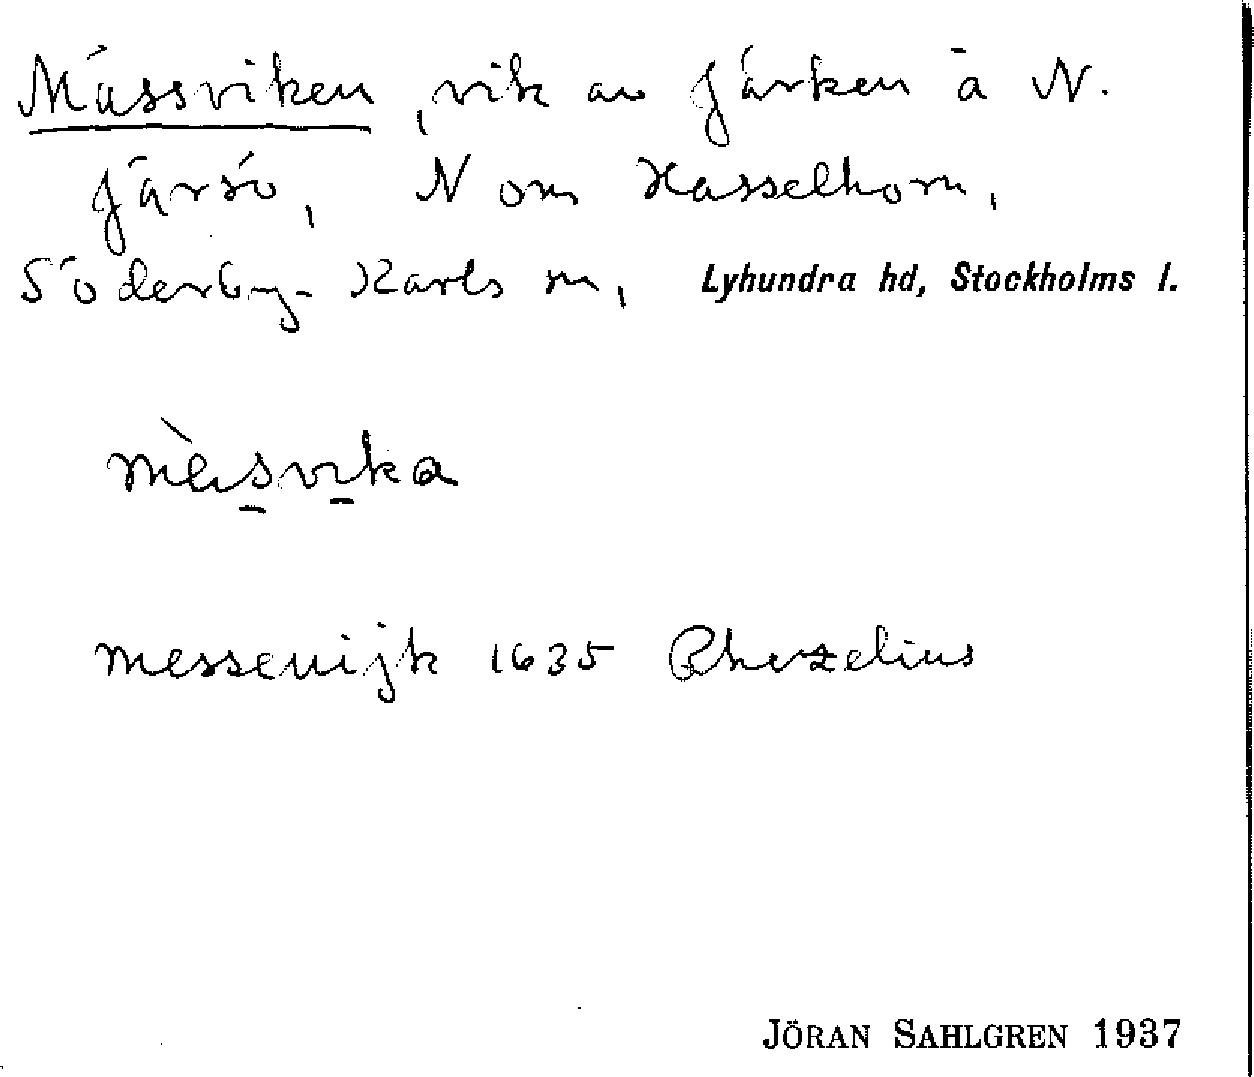 Mässviken, vik av Järken å N.
Järsö, N om Hasselhorn,
Söderby-Karls sn, Lyhundra hd, Stockholms l.
mèsvika
messeuijk 1635 Rhezelius
JÖRAN SAHLGREN 1937